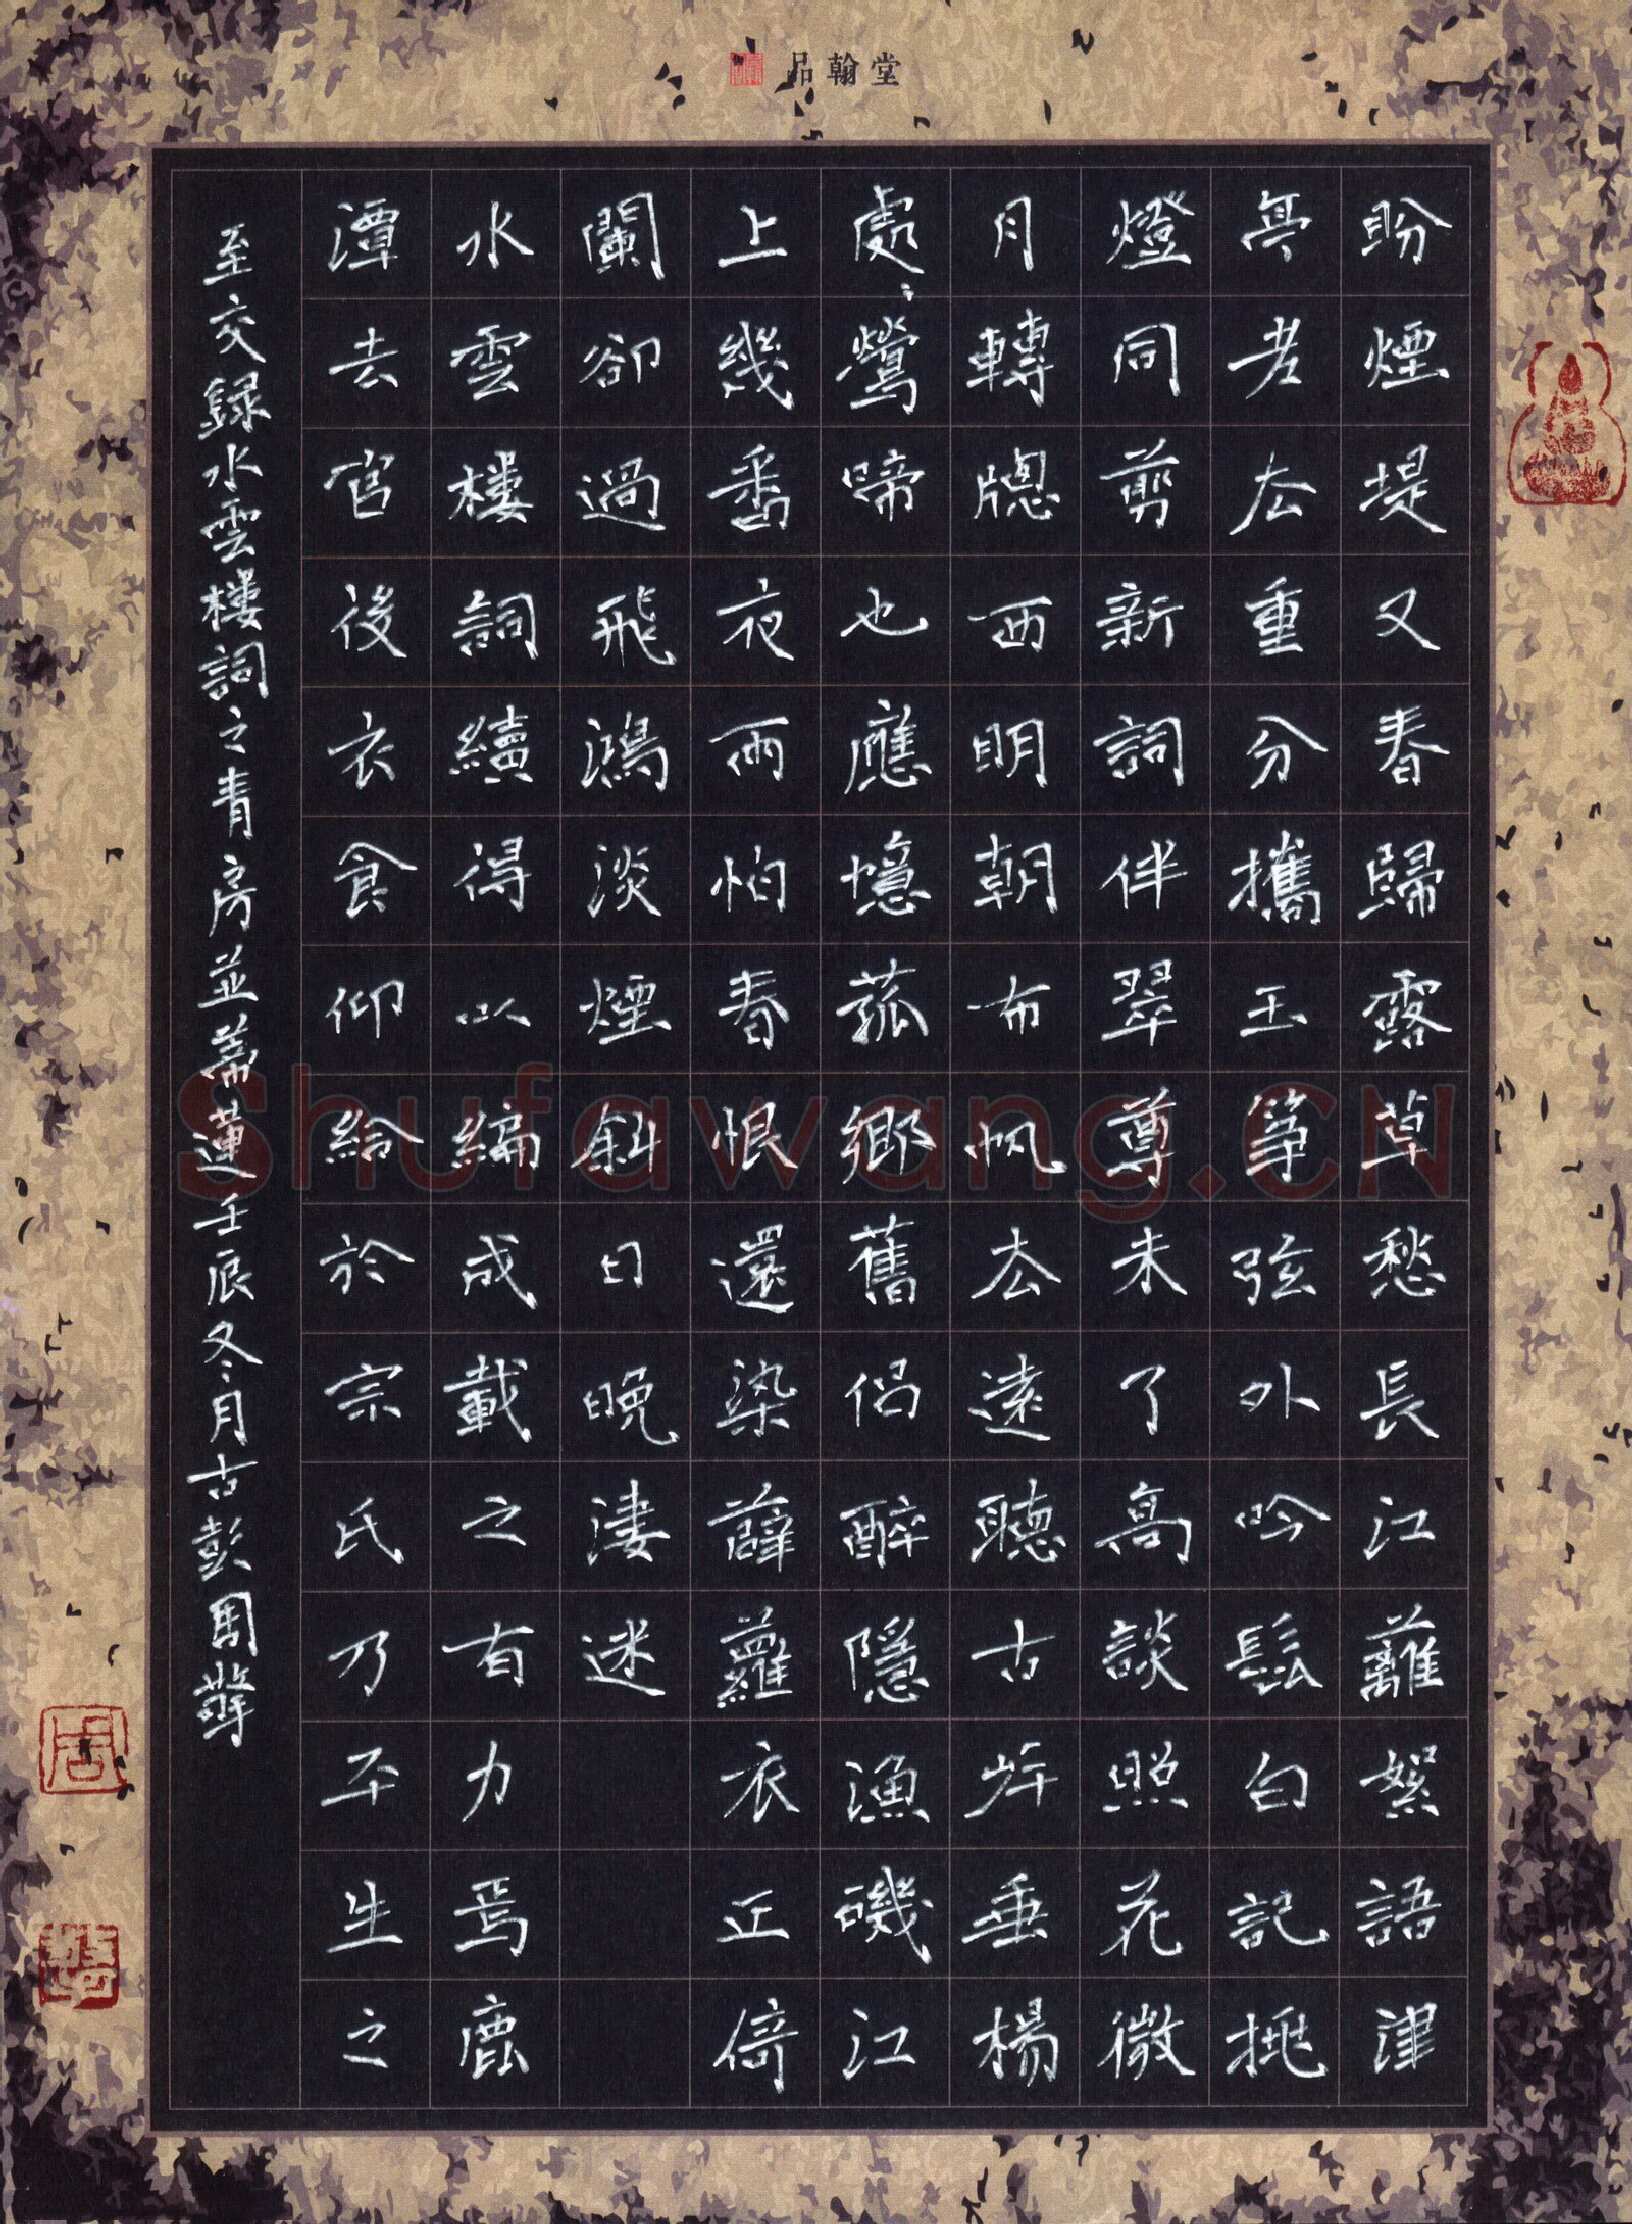 品翰堂
盼煙堤又春歸露草愁長江蘺絮語津
亭老厺重分攜玉箏弦外吟鬂白記挑
燈同剪新詞伴翠尊未了高談照花微
月轉牕西明朝布帆厺遠聽古岸垂楊
處〻鶯啼也應憶菰鄉舊侶醉隱漁磯江
上幾番夜雨怕春恨還染薜蘿衣正倚
闌卻過飛鴻淡煙斜日晚淒迷
水雲樓詞續得以編成載之有力焉鹿
潭去官後衣食仰給於宗氏乃平生之
至交録水雲樓詞之青房並蒂蓮壬辰冬月古彭周
周
Shufawang.CN